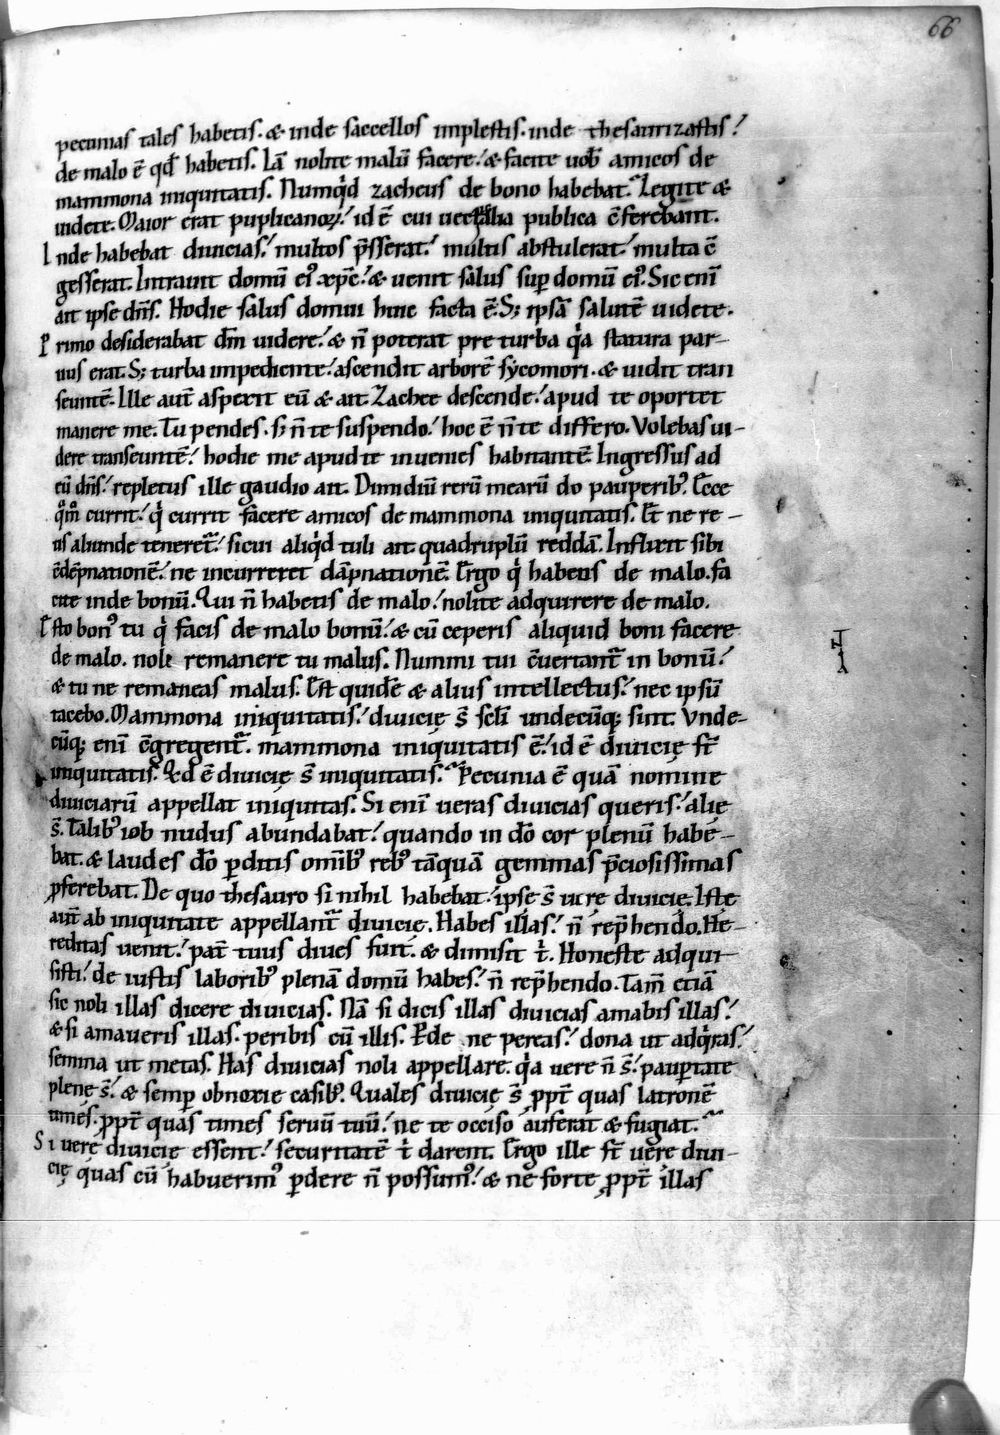 66
pecunias tales habetis. & inde saccellos implestis. inde thesaurizastis!
de malo ē qđ habetis. Iā nolite malū facere! & facite uob̄ amicos de
mammona iniquitatis. Numq̇d zacheus de bono habebat? Legite &
uidete. Maior erat puplicanoꝝ! id ē cui uectigalia publica c̄ferebant.
Inde habebat diuicias! multos p̄sserat! multis abstulerat! multa c̄
gesserat. Intrauit domū eiꝰ xp̄c! & uenit salus sup̱ domū eiꝰ. Sic enī
ait ipse dn̄s. Hodie salus domui huic facta ē. S; ipsā salutē uidete.
Primo desiderabat dn̄m uidere! & n̄ poterat pre turba q̇a statura par-
uus erat. S; turba impediente! ascendit arborē sycomori. & uidit tran
seuntē. Ille aut̄ aspexit eū & ait. Zachee descende! apud te oportet
manere me. Tu pendes. s; n̄ te suspendo! hoc ē n̄ te differo. Volebas ui-
dere transeuntē! hodie me apud te inuenies habitantē. Ingressus ad
eū dn̄s! repletus ille gaudio ait. Dimidiū rerū mearū do pauperibꝰ. Ecce
q̊m̊ currit! q̇ currit facere amicos de mammona iniquitatis. Et ne re-
us aliunde teneret᷑! sicui aliq̇d tuli ait quadruplū reddā. Inflixit sibi
c̄dēpnationē! ne incurreret dāpnationē. Ergo q̇ habetis de malo. fa
cite inde bonū. Qui n̄ habetis de malo! nolite adquirere de malo.
Esto bonꝰ tu q̇ facis de malo bonū! & cū ceperis aliquid boni facere
de malo. noli remanere tu malus. Nummi tui c̄uertant᷑ in bonū!
& tu ne remaneas malus. Est quidē & alius intellectus! nec ipsū
tacebo. Mammona iniquitatis! diuicię s̄ scl̄i undecūq; sint. Vnde-
cūq; enī c̄gregent᷑. mammona iniquitatis ē! id ē diuicię st̄
iniquitatis. Qd ē diuicię s̄ iniquitatis? Pecunia ē quā nomine
diuiciarū appellat iniquitas. Si enī ueras diuicias queris! alię
s̄. Talibꝰ iob nudus abundabat! quando in dō cor plenū habe-
bat. & laudes dō p̱ditis om̄ibꝰ rebꝰ tāquā gemmas p̄ciosissimas
ꝓferebat. De quo thesauro si nihil habebat? ipsę s̄ uerę diuicię. Istę
aut̄ ab iniquitate appellant᷑ diuicię. Habes illas! n̄ rep̄hendo. He-
reditas uenit! pat̄ tuus diues fuit. & dimisit t̍. Honeste adqui-
sisti! de iustis laboribꝰ plenā domū habes! n̄ rep̄hendo. Tam̄ etiā
sic noli illas dicere diuicias. Nā si dicis illas diuicias amabis illas!
& si amaueris illas. peribis cū illis. P̱de ne pereas! dona ut adq̇ras!
semina ut metas. Has diuicias noli appellare. q̇a uere n̄ s̄! paup̱tate
plenę s̄! & semp̱ obnoxię casibꝰ. Quales diuicię s̄ ꝓpt̄ quas latronē
times. ꝓpt̄ quas times seruū tuū! ne te occiso auferat & fugiat?
Si uerę diuicię essent! securitatē t̍ darent. Ergo illę st̄ uerę diui-
cię quas cū habuerimꝰ p̱dere n̄ possumꝰ! & ne forte ꝓpt̄ illas